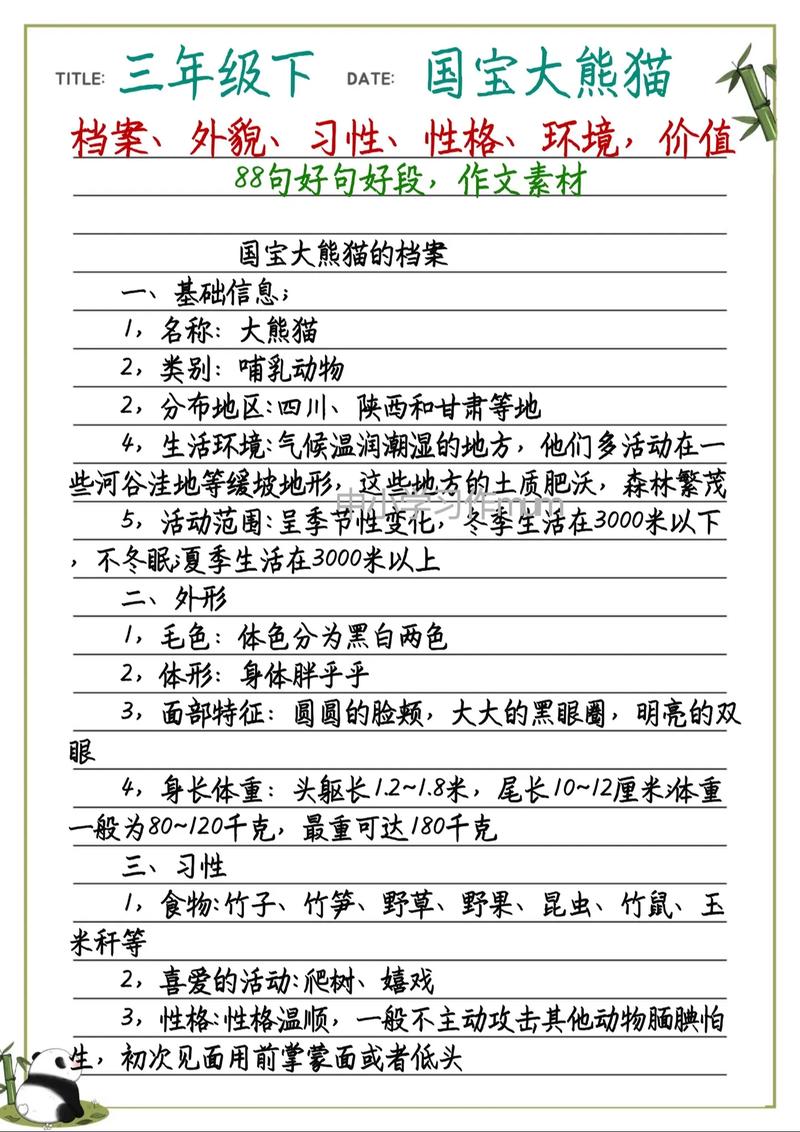 TITLE: 三年级下 DATE: 国宝大熊猫
档案、外貌、习性、性格、环境，价值
88句好句好段，作文素材
国宝大熊猫的档案
一、基础信息；
1，名称：大熊猫
2，类别：哺乳动物
2，分布地区：四川、陕西和甘肃等地
4，生活环境：气候温润潮湿的地方，他们多活动在一
些河谷洼地等缓坡地形，这些地方的土质肥沃，森林繁茂
5，活动范围：呈季节性变化，冬季生活在3000米以下
，不冬眠；夏季生活在3000米以上
二、外形
1，毛色：体色分为黑白两色
2，体形：身体胖乎乎
3，面部特征：圆圆的脸颊，大大的黑眼圈，明亮的双
眼
4，身长体重：头躯长1.2~1.8米，尾长10~12厘米；体重
一般为80~120千克，最重可达180千克
三、习性
1，食物：竹子、竹笋、野草、野果、昆虫、竹鼠、玉
米秆等
2，喜爱的活动：爬树、嬉戏
3，性格：性格温顺，一般不主动攻击其他动物腼腆怕
生，初次见面用前掌蒙面或者低头